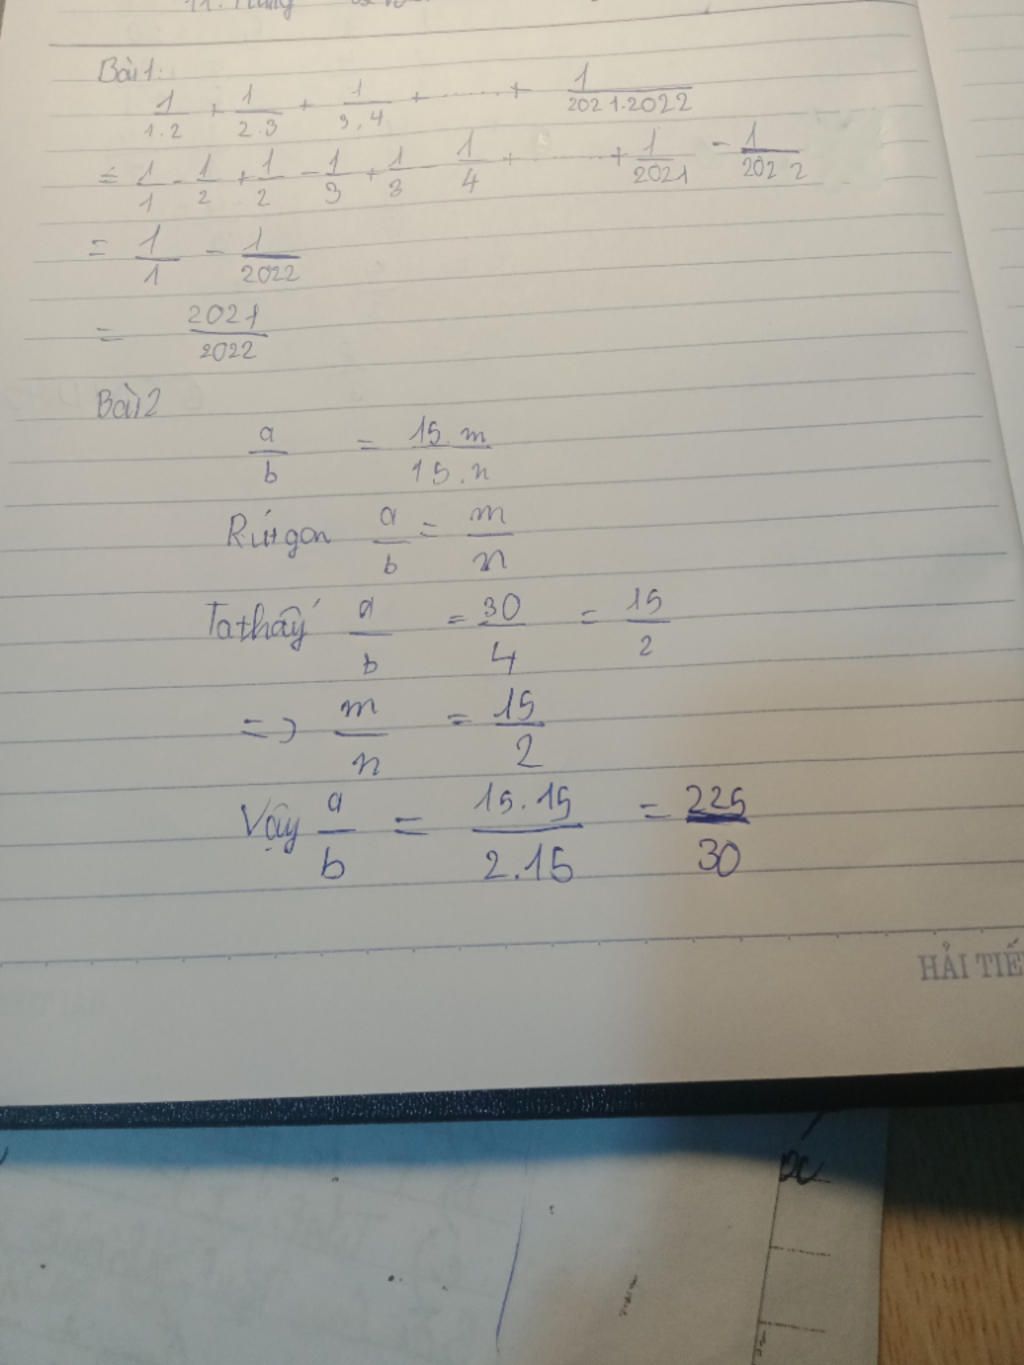 Bài 1:
1/1.2 + 1/2.3 + 1/3.4 + ...... + 1/2021.2022
= 1/1 - 1/2 + 1/2 - 1/3 + 1/3 - 1/4 + ...... + 1/2021 - 1/2022
= 1/1 - 1/2022
= 2021/2022
Bài 2
a/b = 15.m/15.n
Rút gọn a/b = m/n
Ta thấy a/b = 30/4 = 15/2
=> m/n = 15/2
Vậy a/b = 15.15/2.15 = 225/30